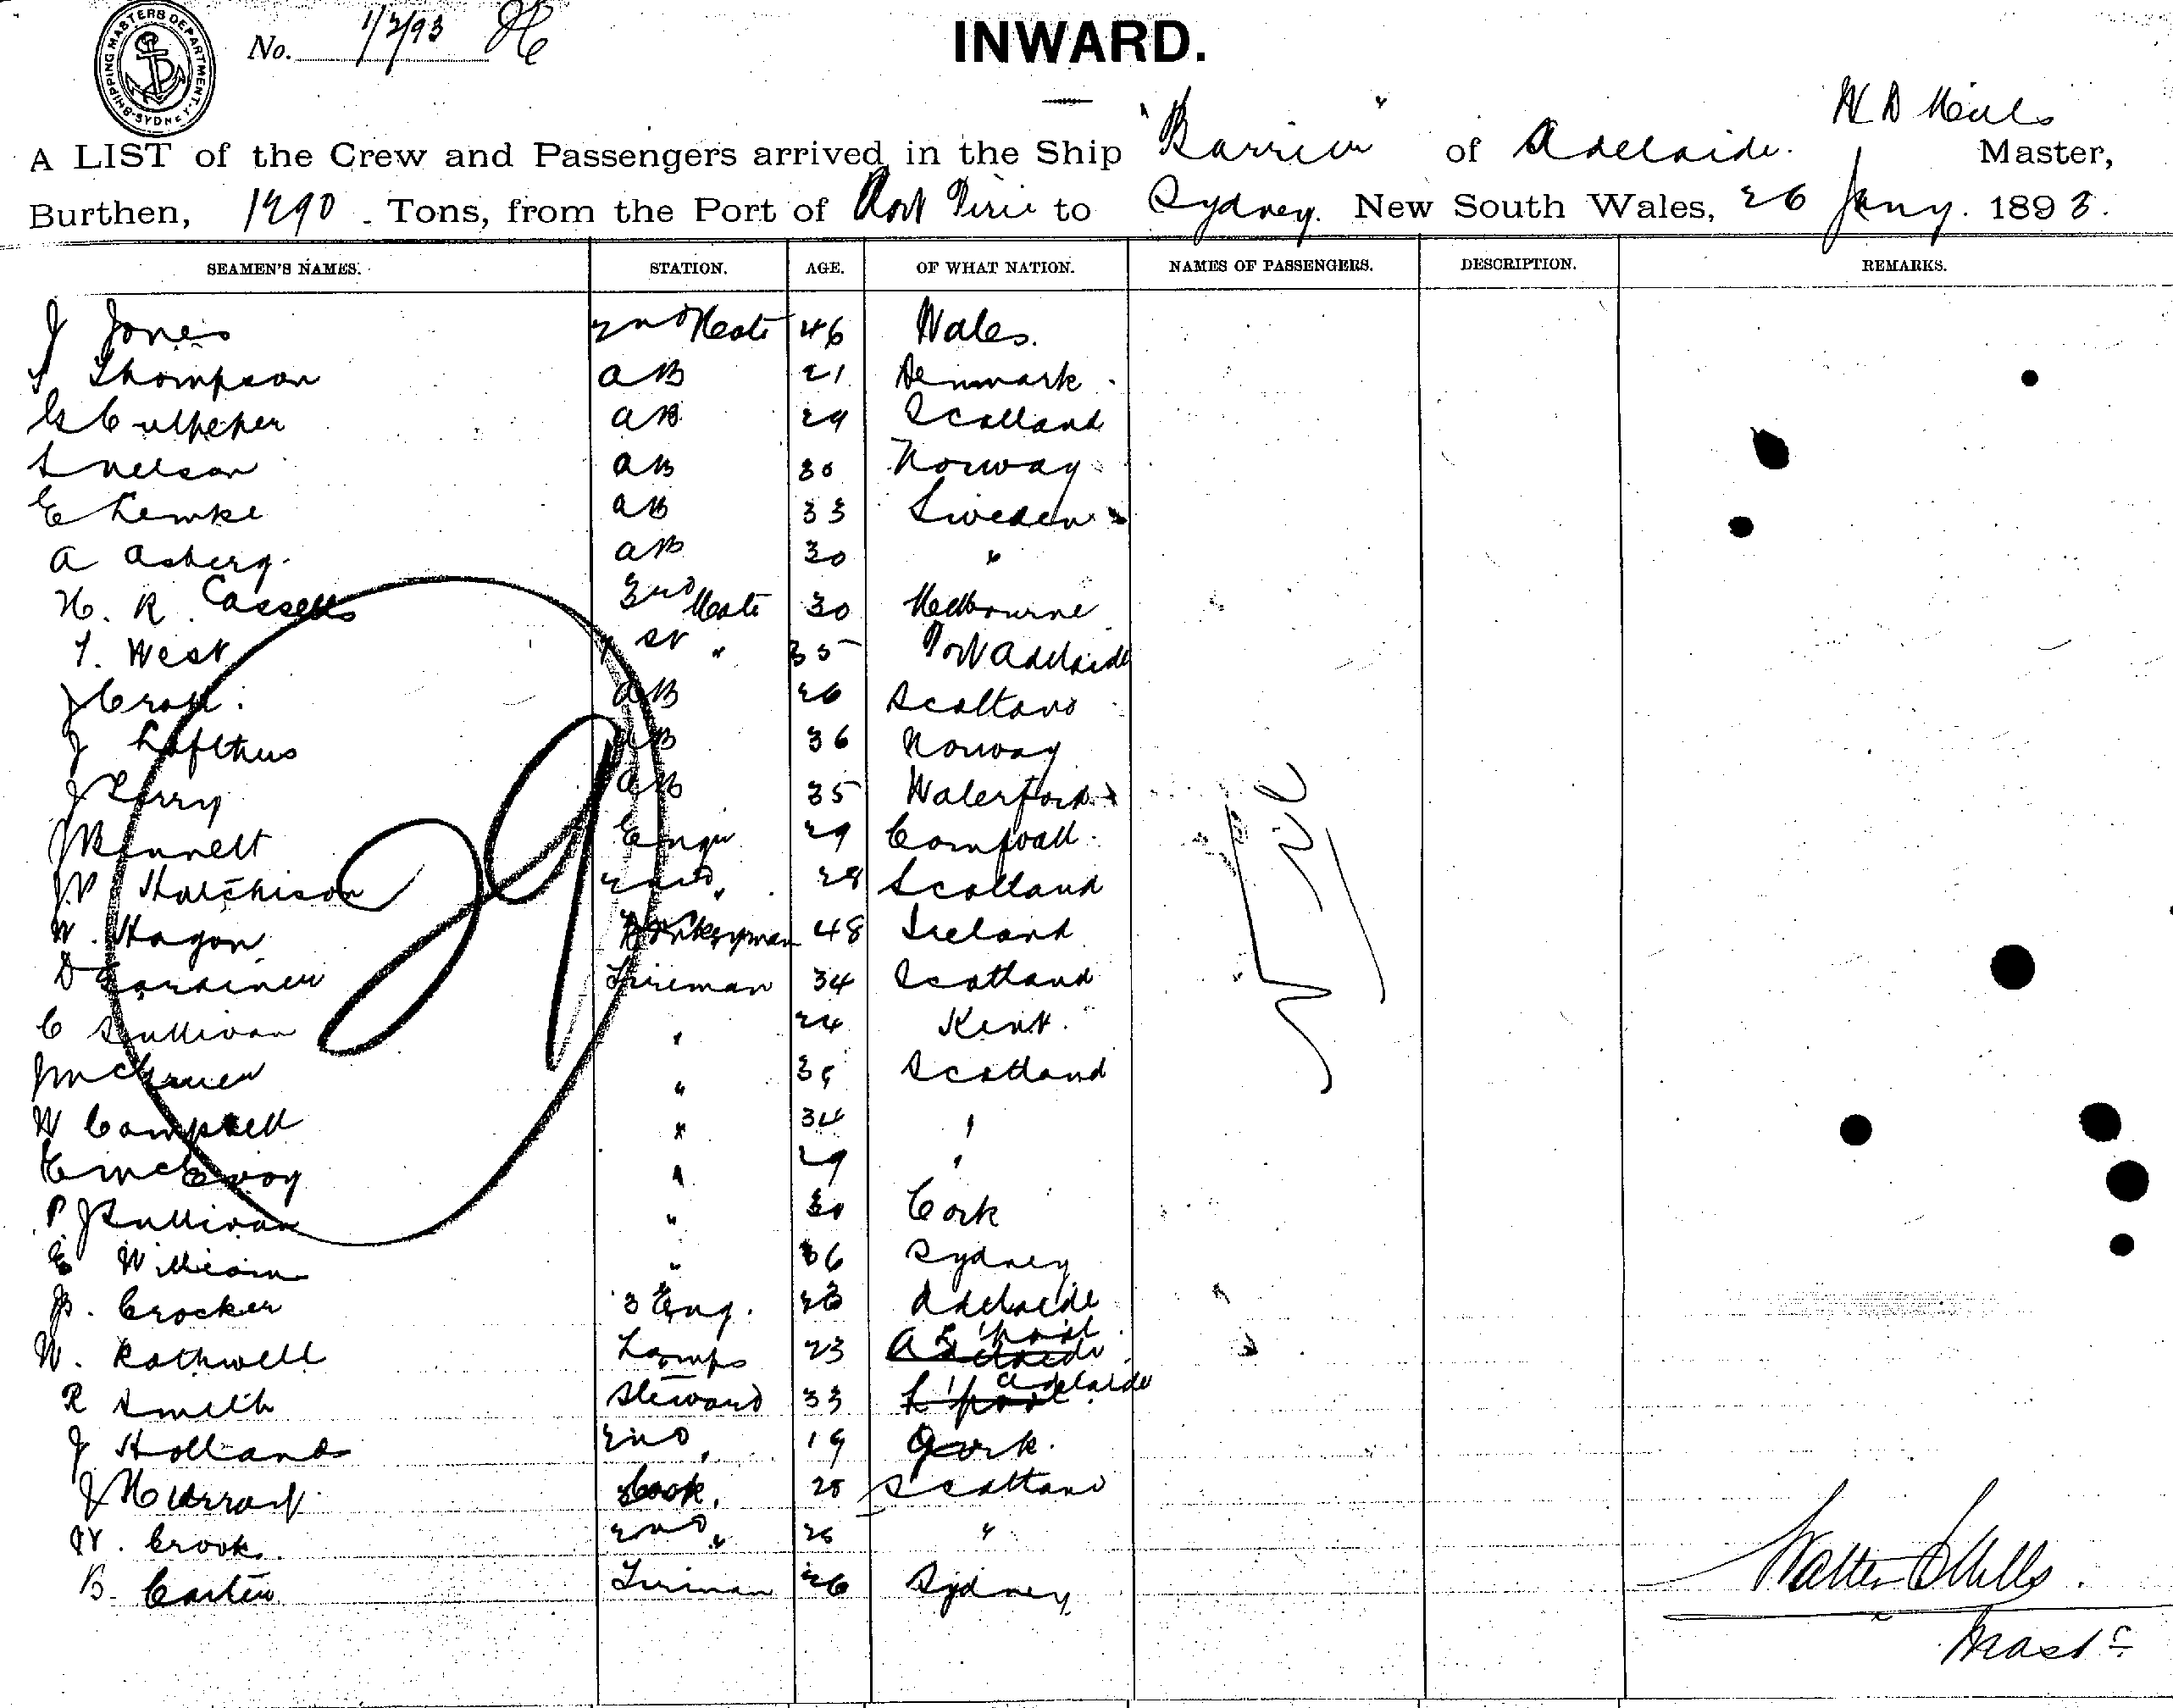 SHIPPING MASTERS DEPARTMENT. SYDNEY
No. 1/2/93
INWARD.
W D Mills
A LIST of the Crew and Passengers arrived in the Ship "Barrier" of Adelaide. Master,
Burthen, 1290 Tons, from the Port of Port Pirie to Sydney. New South Wales, 26 Jany. 1893.
SEAMEN'S NAMES. STATION. AGE. OF WHAT NATION. NAMES OF PASSENGERS. DESCRIPTION. REMARKS.
J Jones 2nd Mate 46 Wales.
Thompson AB 21 Denmark
G Culpeper AB 29 Scotland
Nelson AB 30 Norway
E Lemke AB 33 Sweden
A Asberg. AB 30 "
H. R. Cassells 3rd Mate 30 Melbourne
T. West 1st " 35 Port Adelaide
J Croft. AB 26 Scotland
J Lofthus AB 36 Norway
J Perry AB 35 Waterford
J Bennett Engr 29 Cornwall
J P Hutchison 2nd " 28 Scotland
W. Hagon Donkeyman 48 Ireland
D Gardiner Fireman 34 Scotland
C Sullivan " 24 Kent.
" 35 Scotland
W Campbell " 34 "
E McEvoy " 29 "
P J Sullivan " 30 Cork
E William " 36 Sydney
Crocker 3 Eng. 23 Adelaide
W. Rothwell Lamps 23 L'pool
R Smith Steward 33 Adelaide
J Holland 2nd " 19 Cork.
J Murray Cook. 28 Scotland
W. Crook. 2nd " 26 "
B. Carter Fireman 26 Sydney
Nil
29
Walter D Mills.
Master